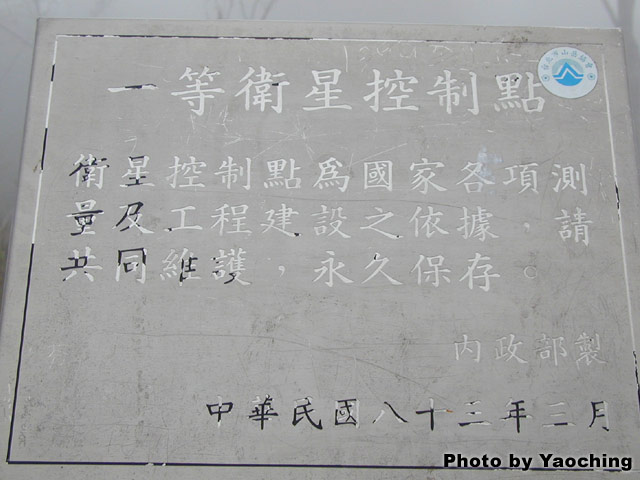 一等衛星控制點
衛星控制點為國家各項測
量及工程建設之依據，請
共同維護，永久保存。
內政部製
中華民國八十三年三月
Photo by Yaoching